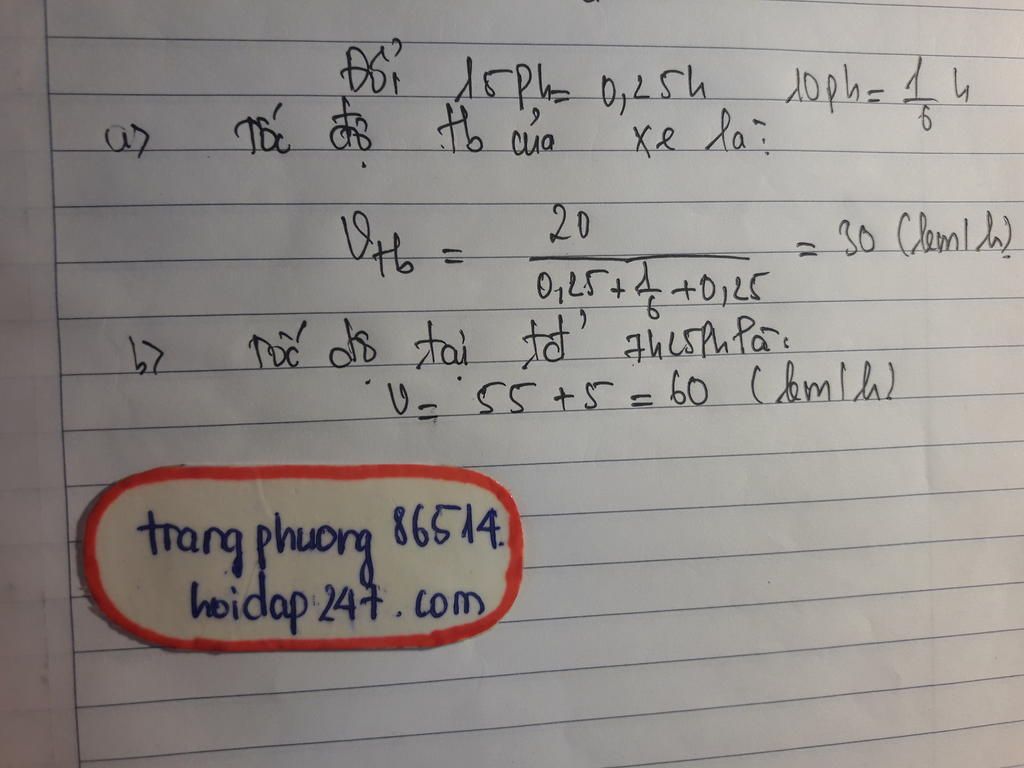 Đổi 15ph = 0,25h 10ph = 1/6 h
a> Tốc độ tb của xe là:
Vtb = 20 / (0,25 + 1/6 + 0,25) = 30 (km/h)
b> Tốc độ tại tđ 7h15ph là:
V = 55 + 5 = 60 (km/h)
trangphuong 86514.
hoidap247.com